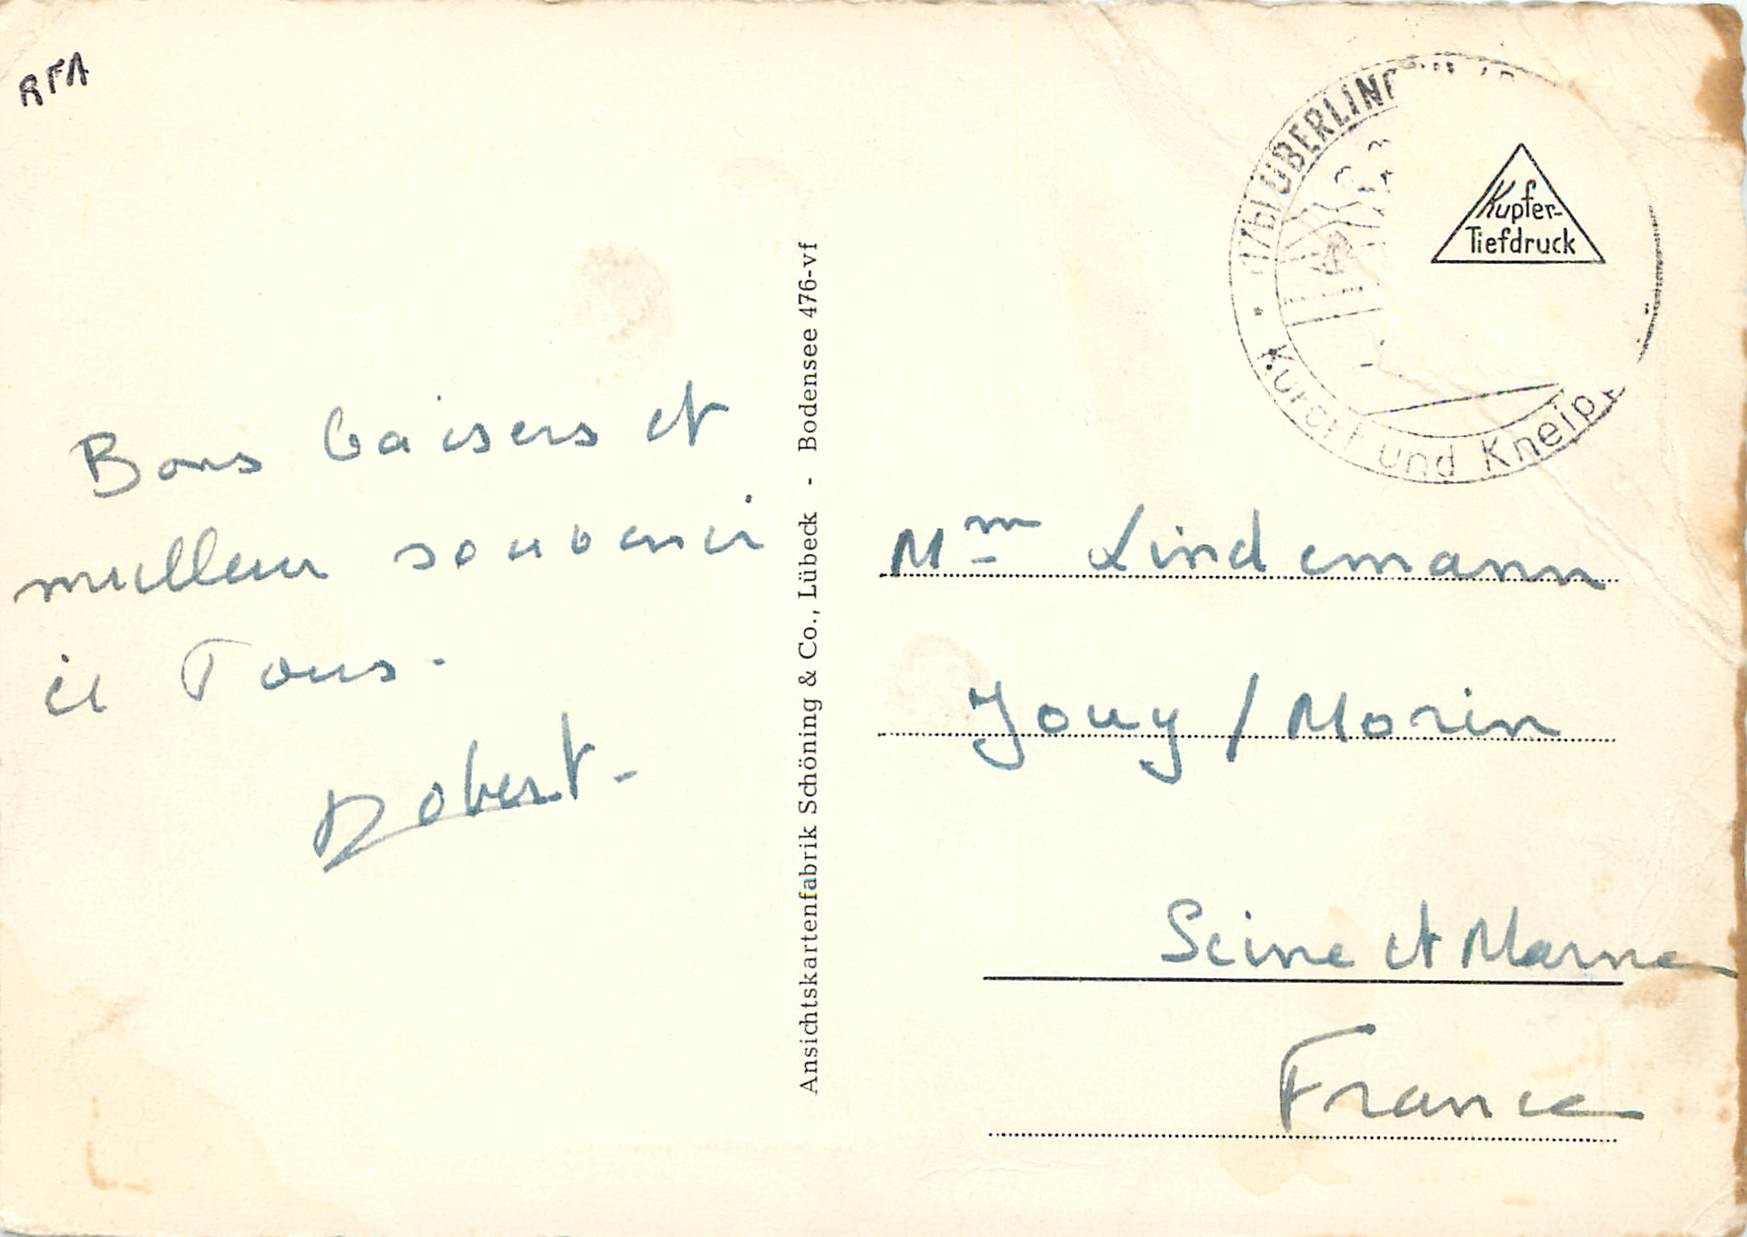 RFA
Bons baisers et
meilleur souvenir
à Tous.
Robert-
Ansichtskartenfabrik Schöning & Co., Lübeck - Bodensee 476-vf
ÜBERLING
Kurort und Kneip
Kupfer-
Tiefdruck
Mm Lindemann
Jouy / Morin
Seine et Marne
France